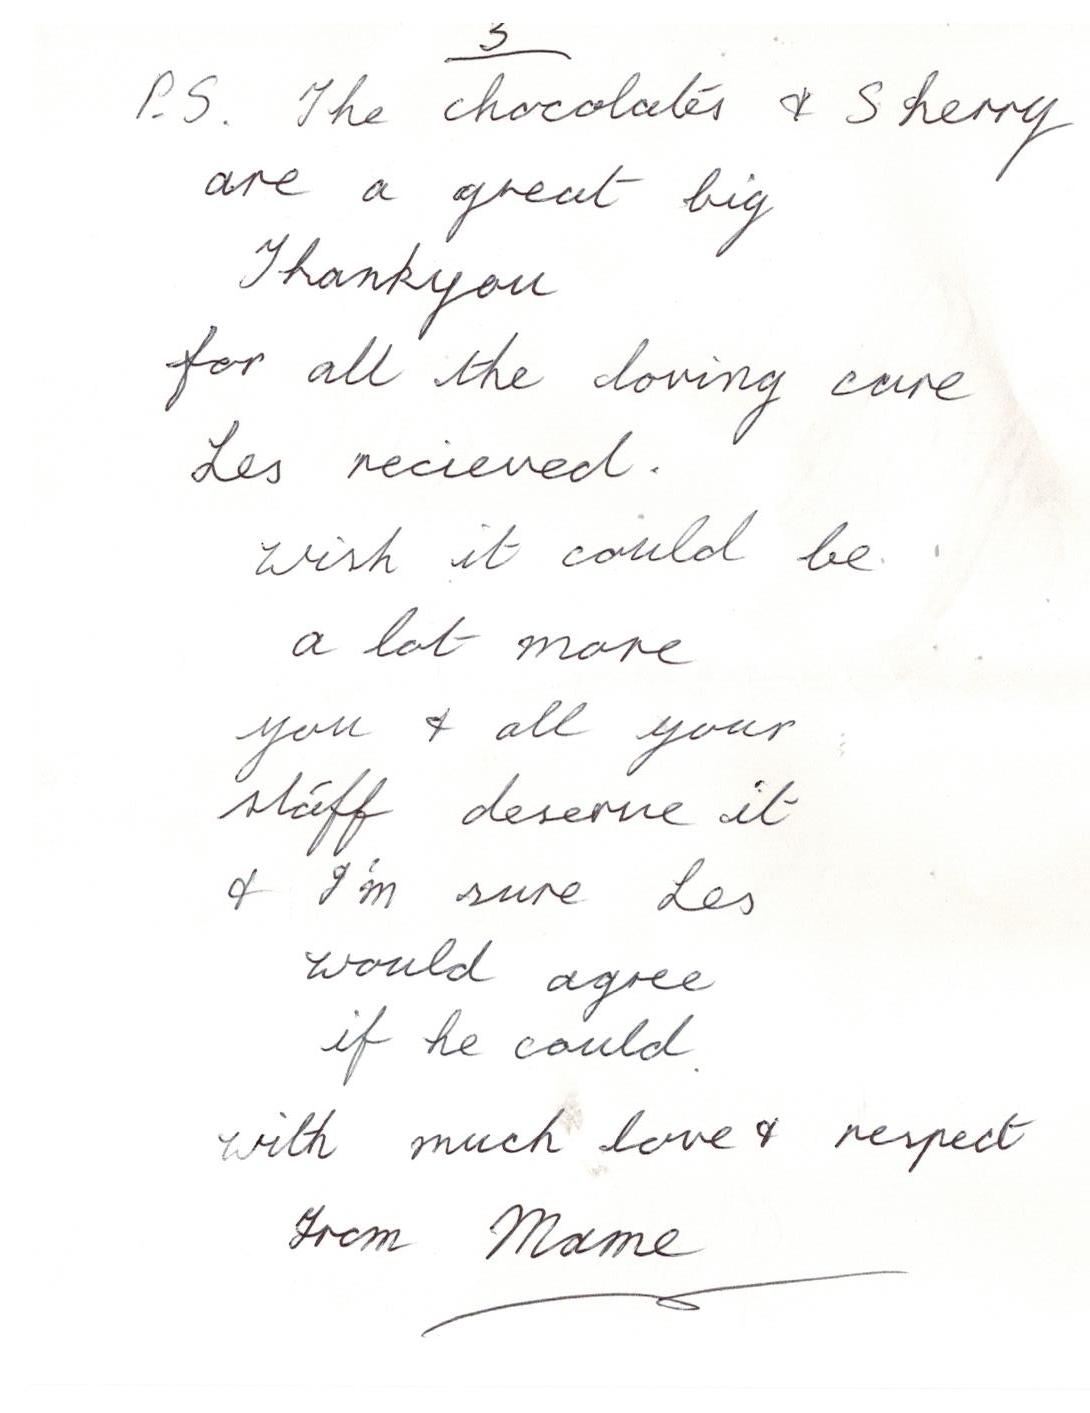 3
P.S. The chocolates & Sherry
are a great big
Thankyou
for all the loving care
Les recieved.
wish it could be
a lot more
you & all your
staff deserve it
& I'm sure Les
would agree
if he could.
with much love & respect
From Mame